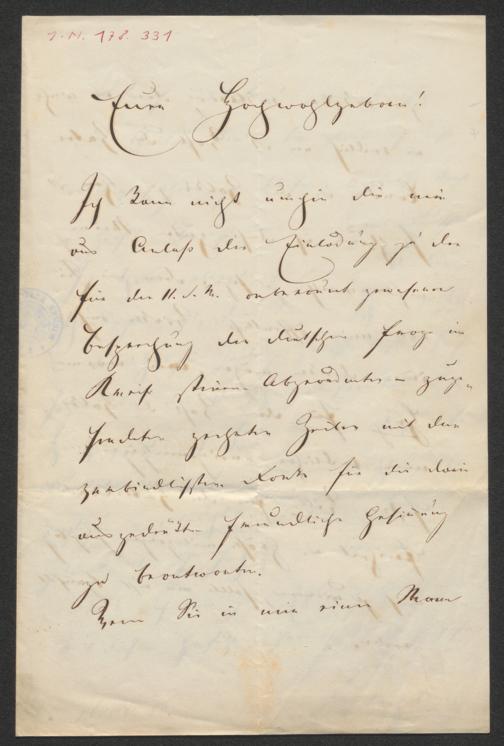 I.N. 178.331
Euer Hochwohlgeboren!
Ich kann nicht umhin die mir
aus Anlaß der Einladung zu der
für den 11. d. M. anberaumt gewesenen
Besprechung der deutschen Frage im
Kreise Abgeordneten zuge-
sendeten geehrten Zeilen mit dem
verbindlichsten Danke für die darin
ausgedrückte freundliche Gesinnung
zu beantworten.
Wenn Sie in mir einen Mann